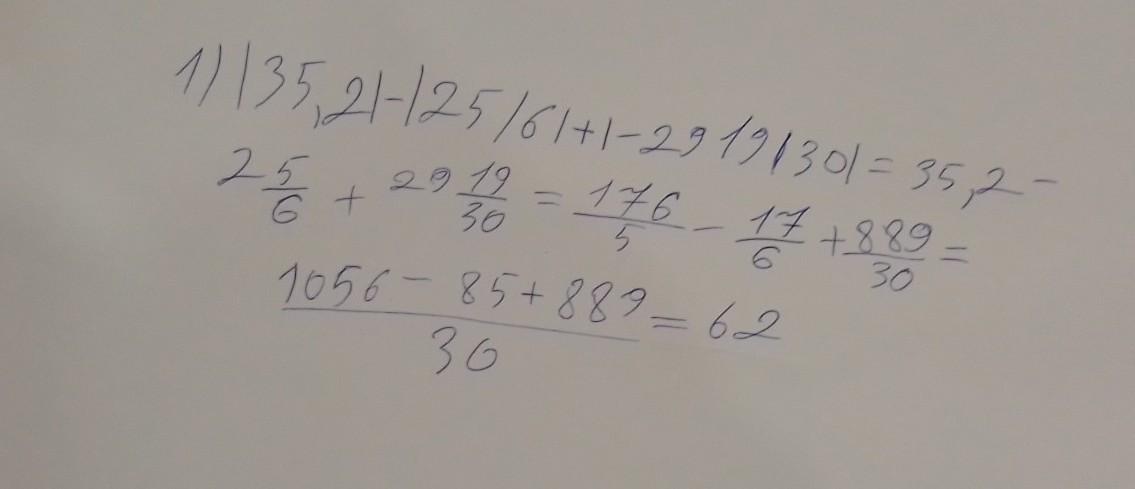 1) |35,2|-|25/6|+|-29 19/30|= 35,2 -
2 5/6 + 29 19/30 = 176/5 - 17/6 + 889/30 =
1056 - 85 + 889/30 = 62